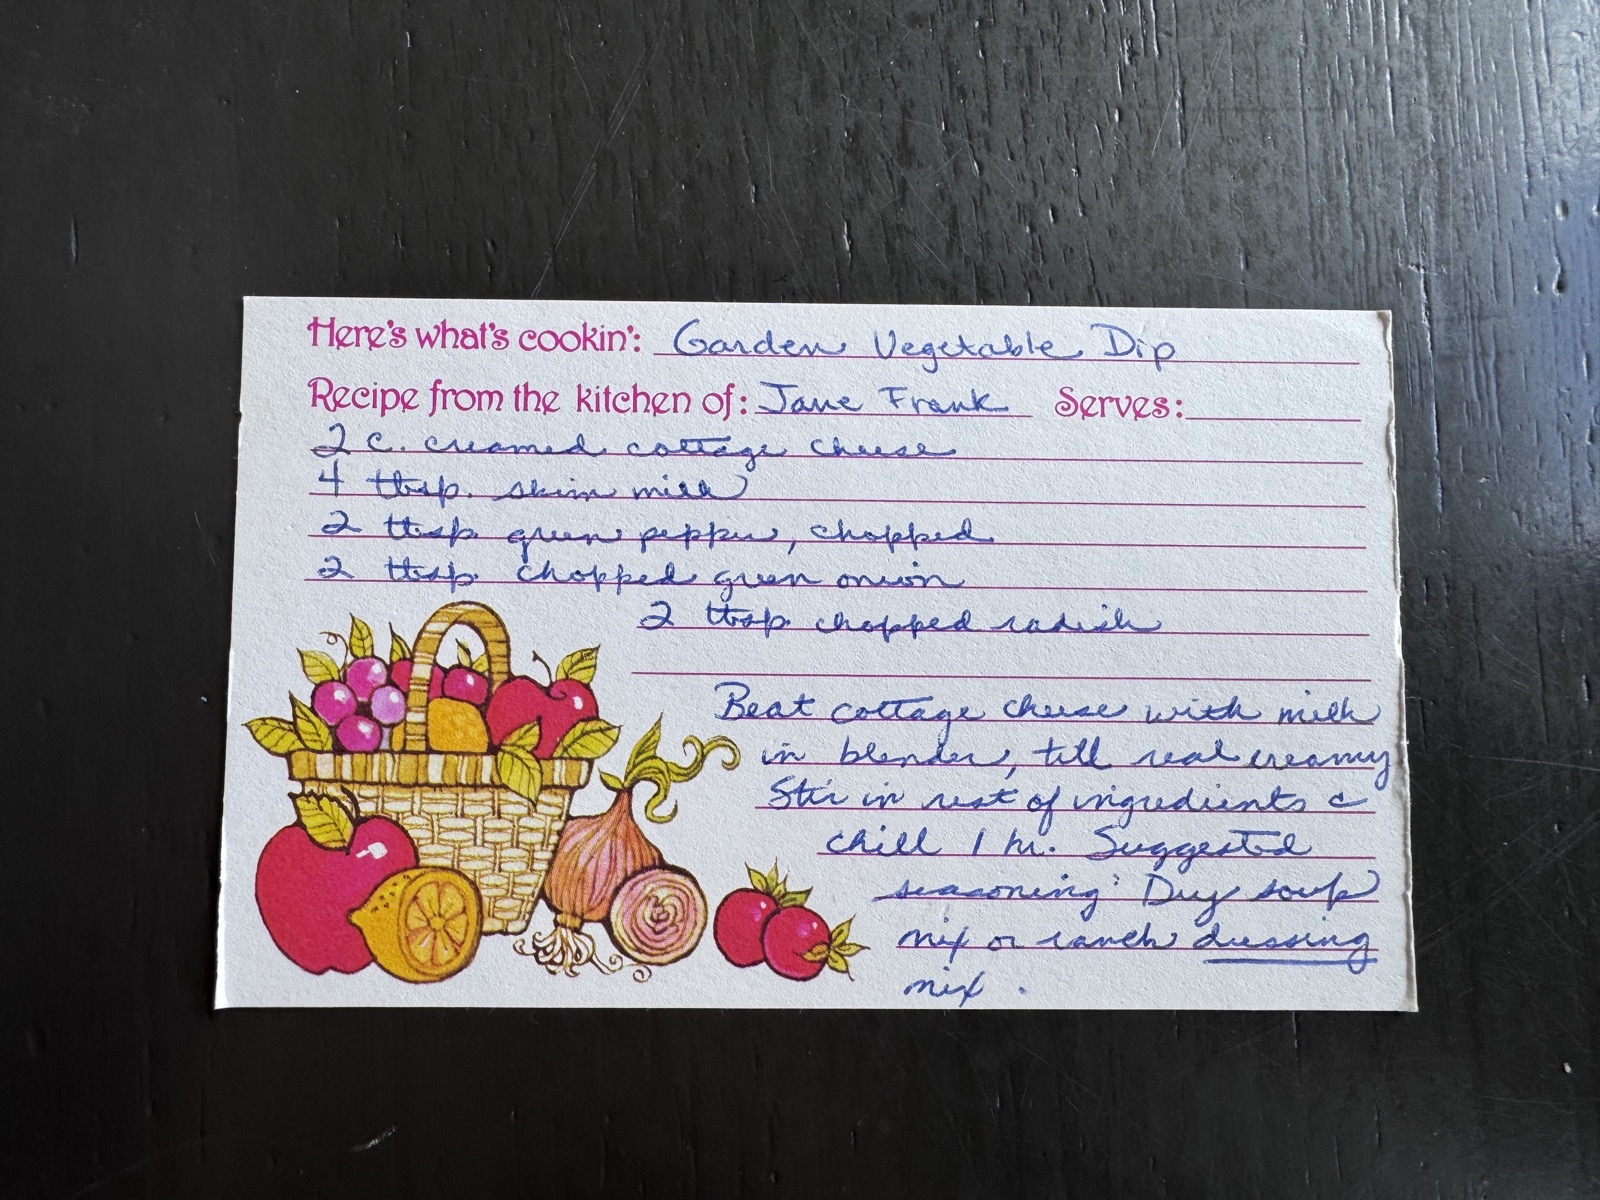 Here's what's cookin': Garden Vegetable Dip
Recipe from the kitchen of: Jane Frank Serves:
2 c. creamed cottage cheese
4 tbsp. skim milk
2 tbsp green pepper, chopped
2 tbsp chopped green onion
2 tbsp. chopped radish
Beat cottage cheese with milk
in blender, till real creamy
Stir in rest of ingredients &
chill 1 hr. Suggested
seasoning: Dry soup
mix or ranch dressing
mix.